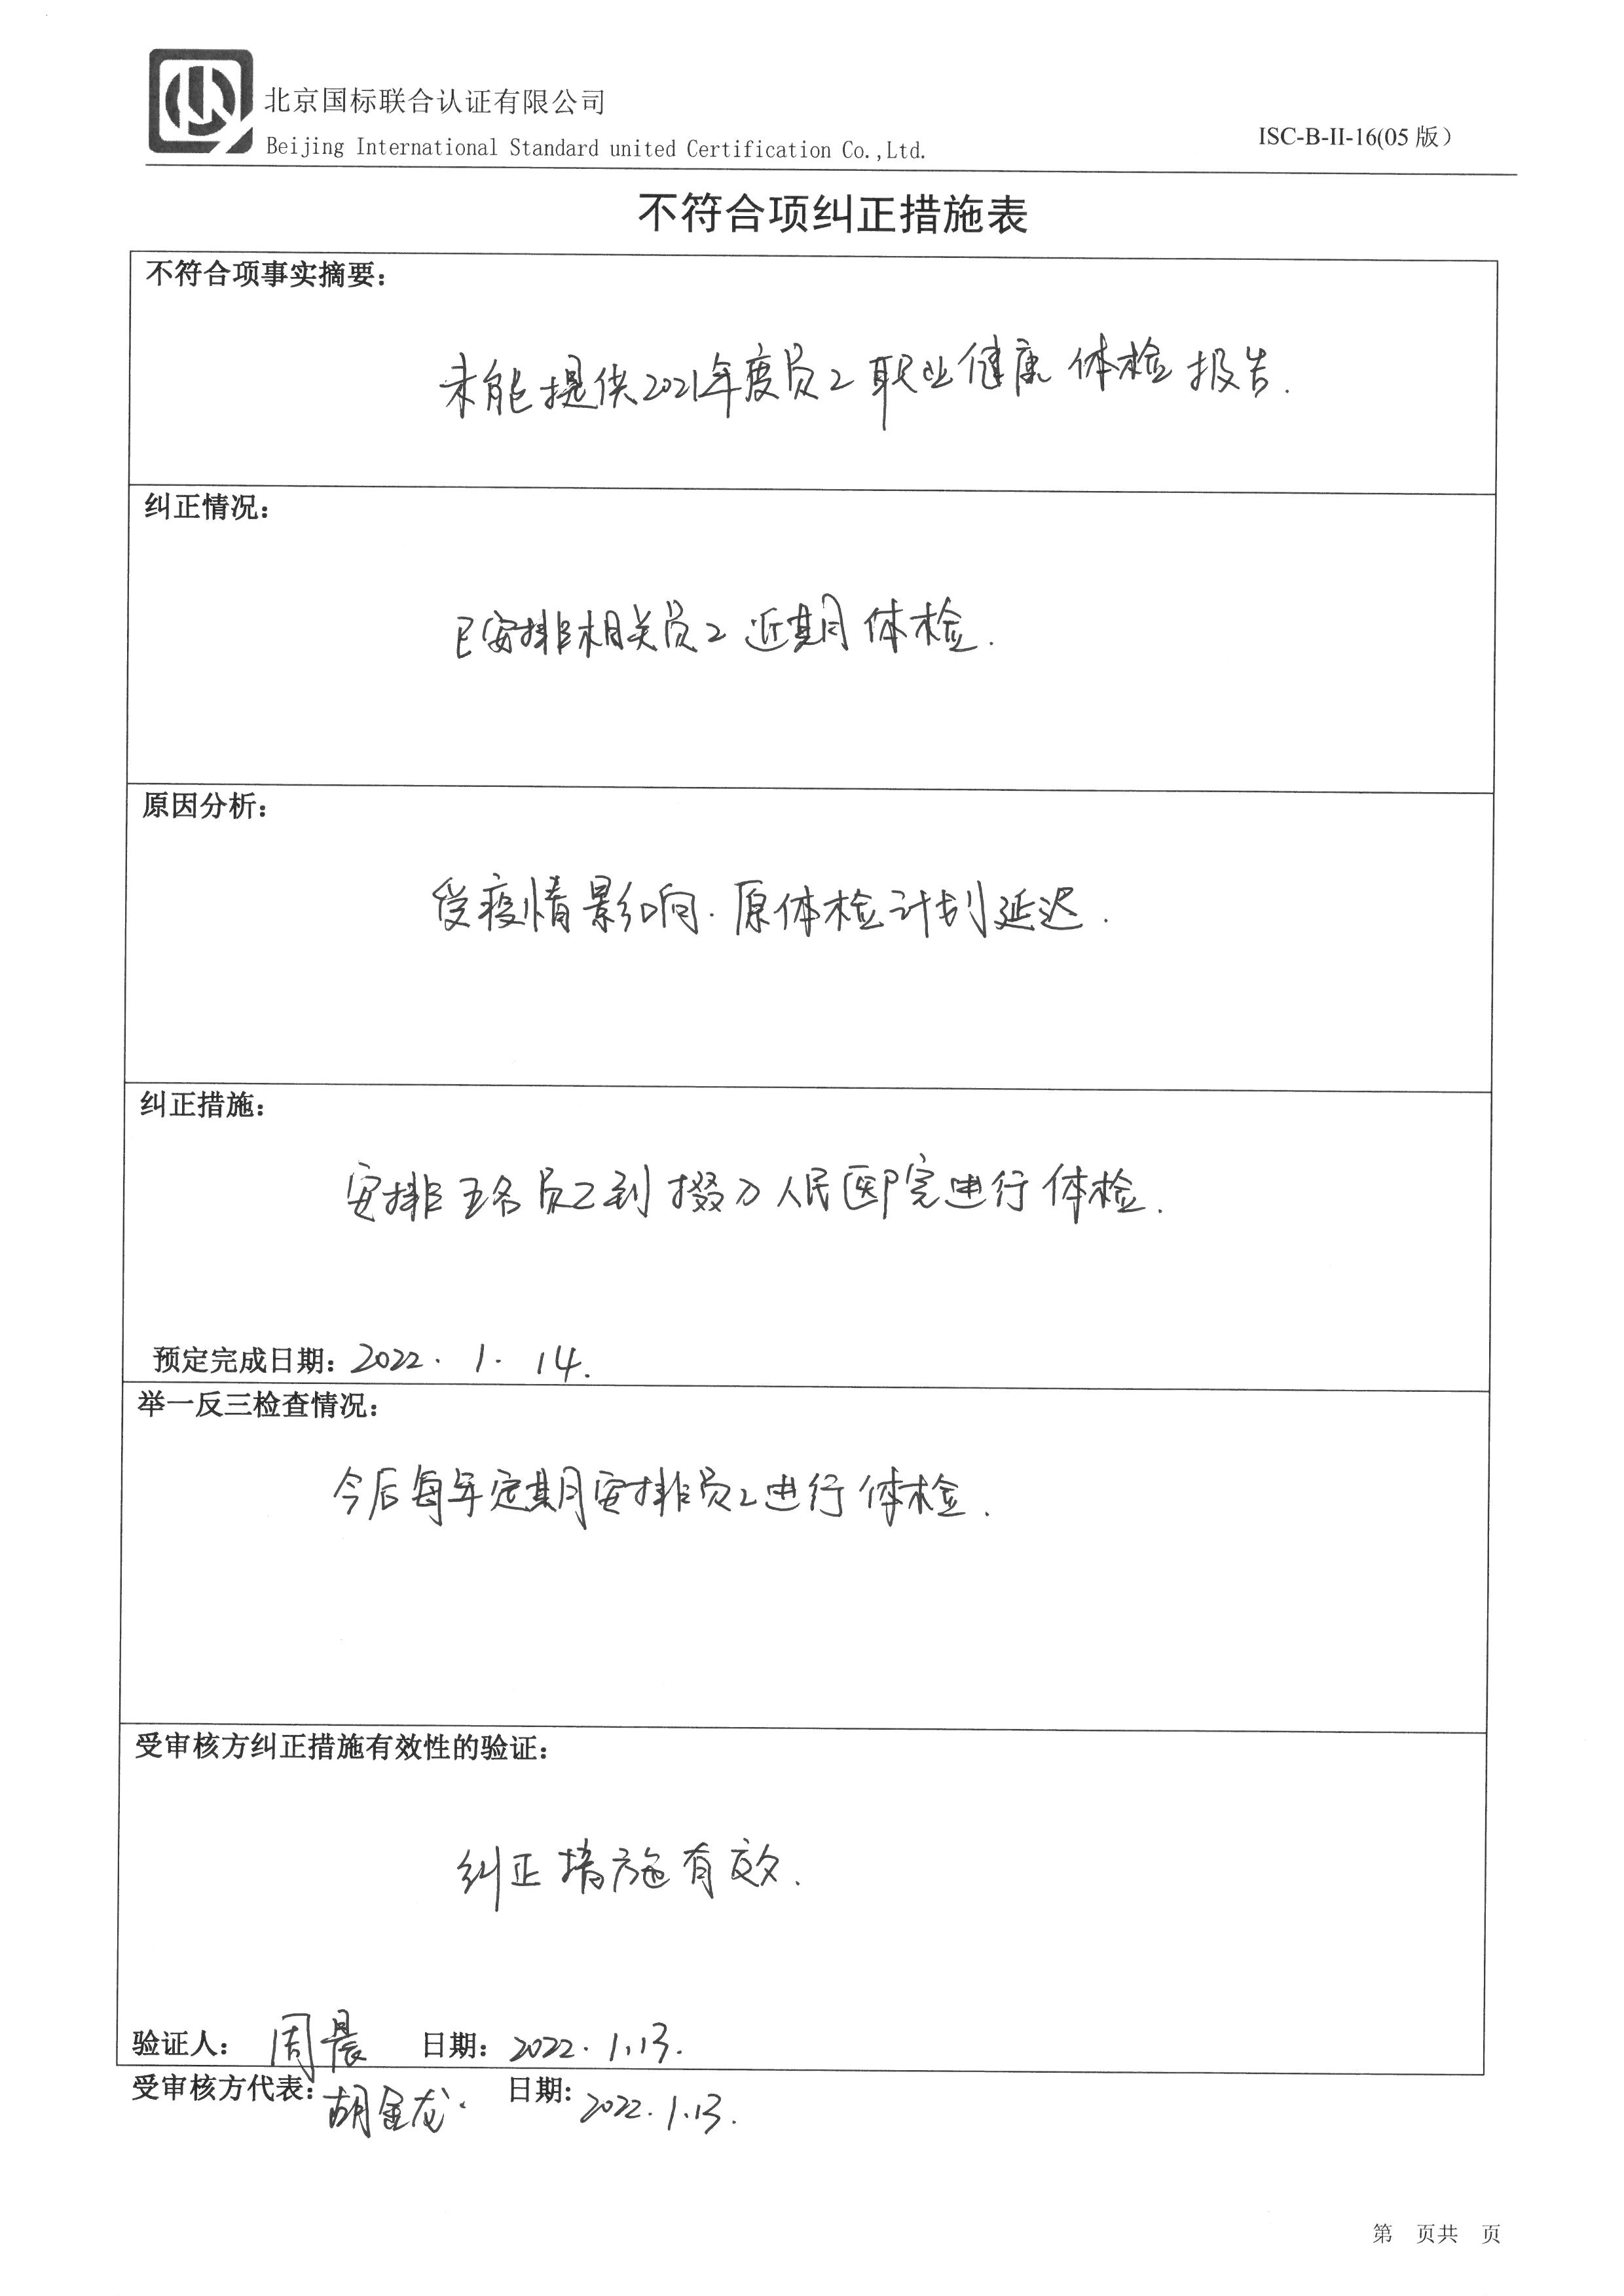 北京国标联合认证有限公司
Beijing International Standard united Certification Co.,Ltd.
ISC-B-II-16(05 版)
不符合项纠正措施表
不符合项事实摘要：
未能提供2021年度员工职业健康体检报告.
纠正情况：
已安排相关员工近期体检.
原因分析：
受疫情影响.原体检计划延迟.
纠正措施：
安排五名员工到掇刀人民医院进行体检.
预定完成日期：2022. 1. 14.
举一反三检查情况：
今后每年定期安排员工进行体检.
受审核方纠正措施有效性的验证：
纠正措施有效.
验证人： 周晨 日期：2022. 1.13.
受审核方代表：胡金龙. 日期：2022. 1.13.
第 页共 页